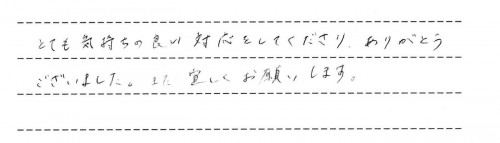 とても気持ちの良い対応をしてくださり、ありがとう
ございました。また宜しくお願いします。